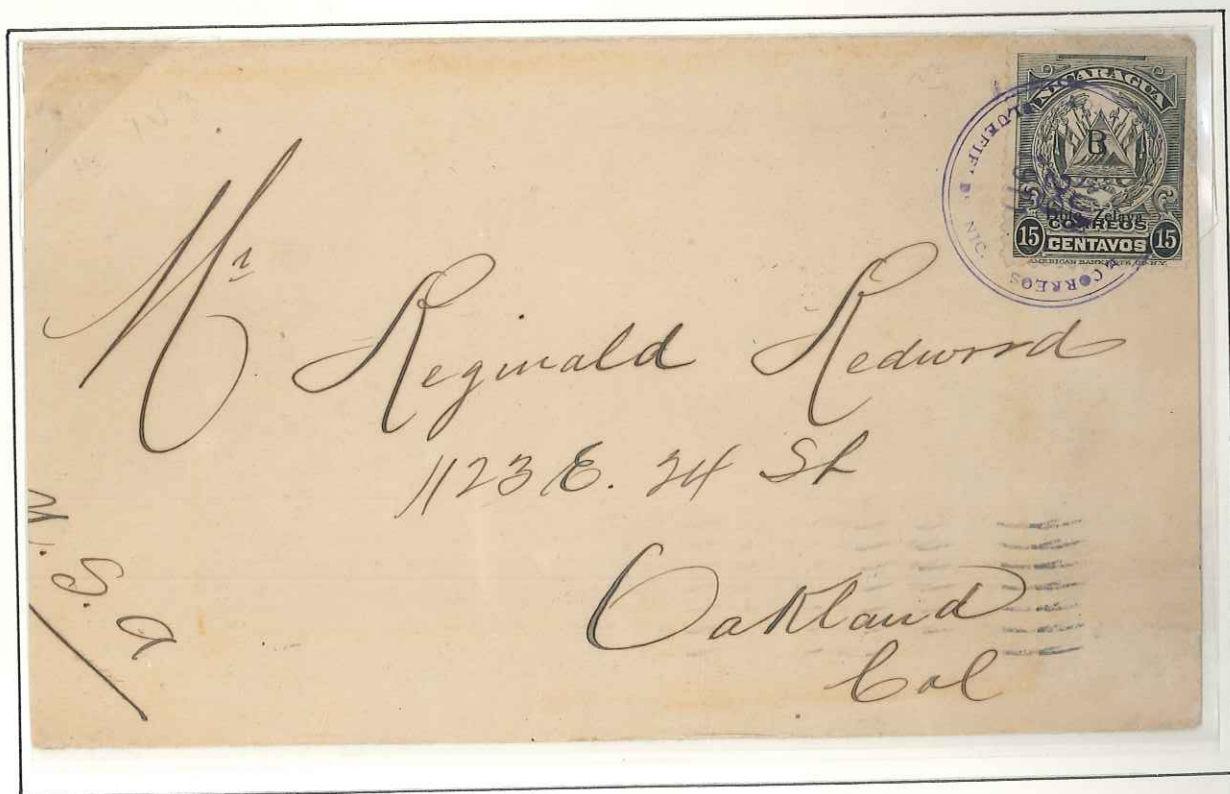 NICARAGUA
B
Dpto. Zelaya
CORREOS
15 CENTAVOS 15
AMERICAN BANK NOTE CO. N.Y.
CORREOS
Mr Reginald Redwood
1123 E. 24 St
Oakland
Cal
U.S.A